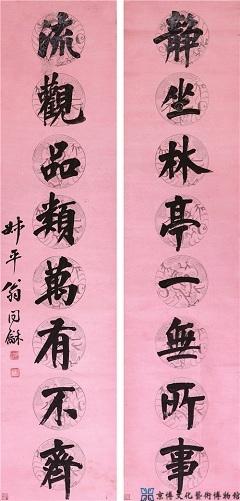 静坐林亭一無所事
流觀品類萬有不齊
姊平翁同龢
京博文化藝術博物館